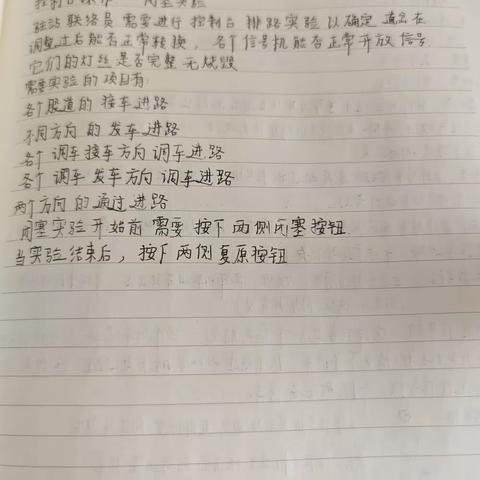 控制台操作 闭塞实验
驻站联络员需要进行控制台排路实验以确定道岔在
调整过后能否正常转换，各个信号机能否正常开放信号
它们的灯丝是否完整无烧毁
需要实验的项目有
各个股道的接车进路
不同方向的发车进路
各个调车接车方向调车进路
各个调车发车方向调车进路
两个方向的通过进路
闭塞实验开始前需要按下两侧闭塞按钮
当实验结束后，按下两侧复原按钮